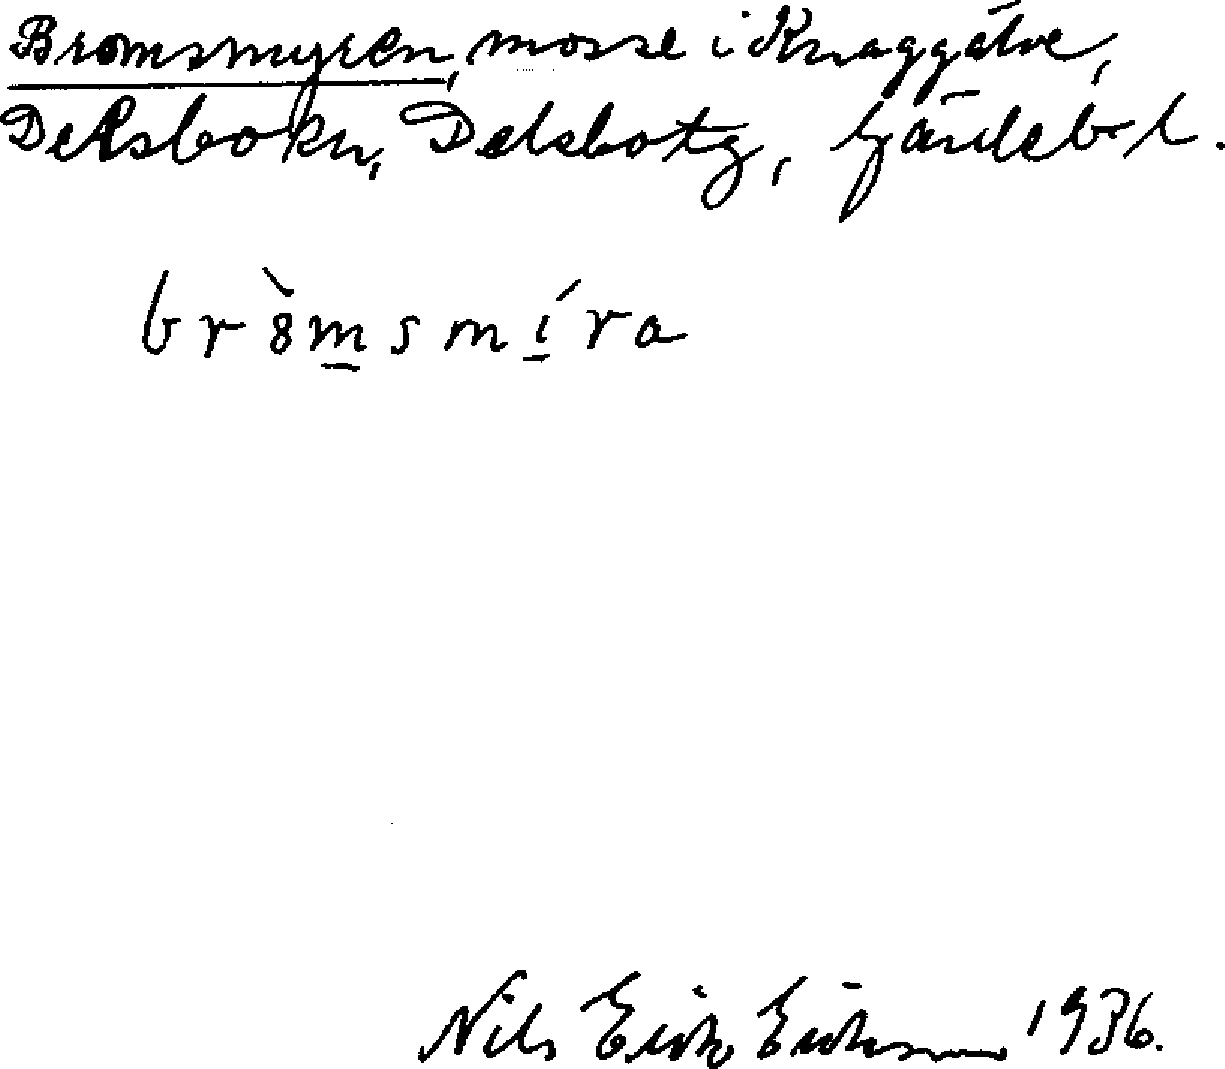 Bromsmyren, mosse i Knaggälve,
Delsbo kn, Delsbo tg, Gävleb. l.
bròmsmíra
Nils Erik Eriksson 1936.